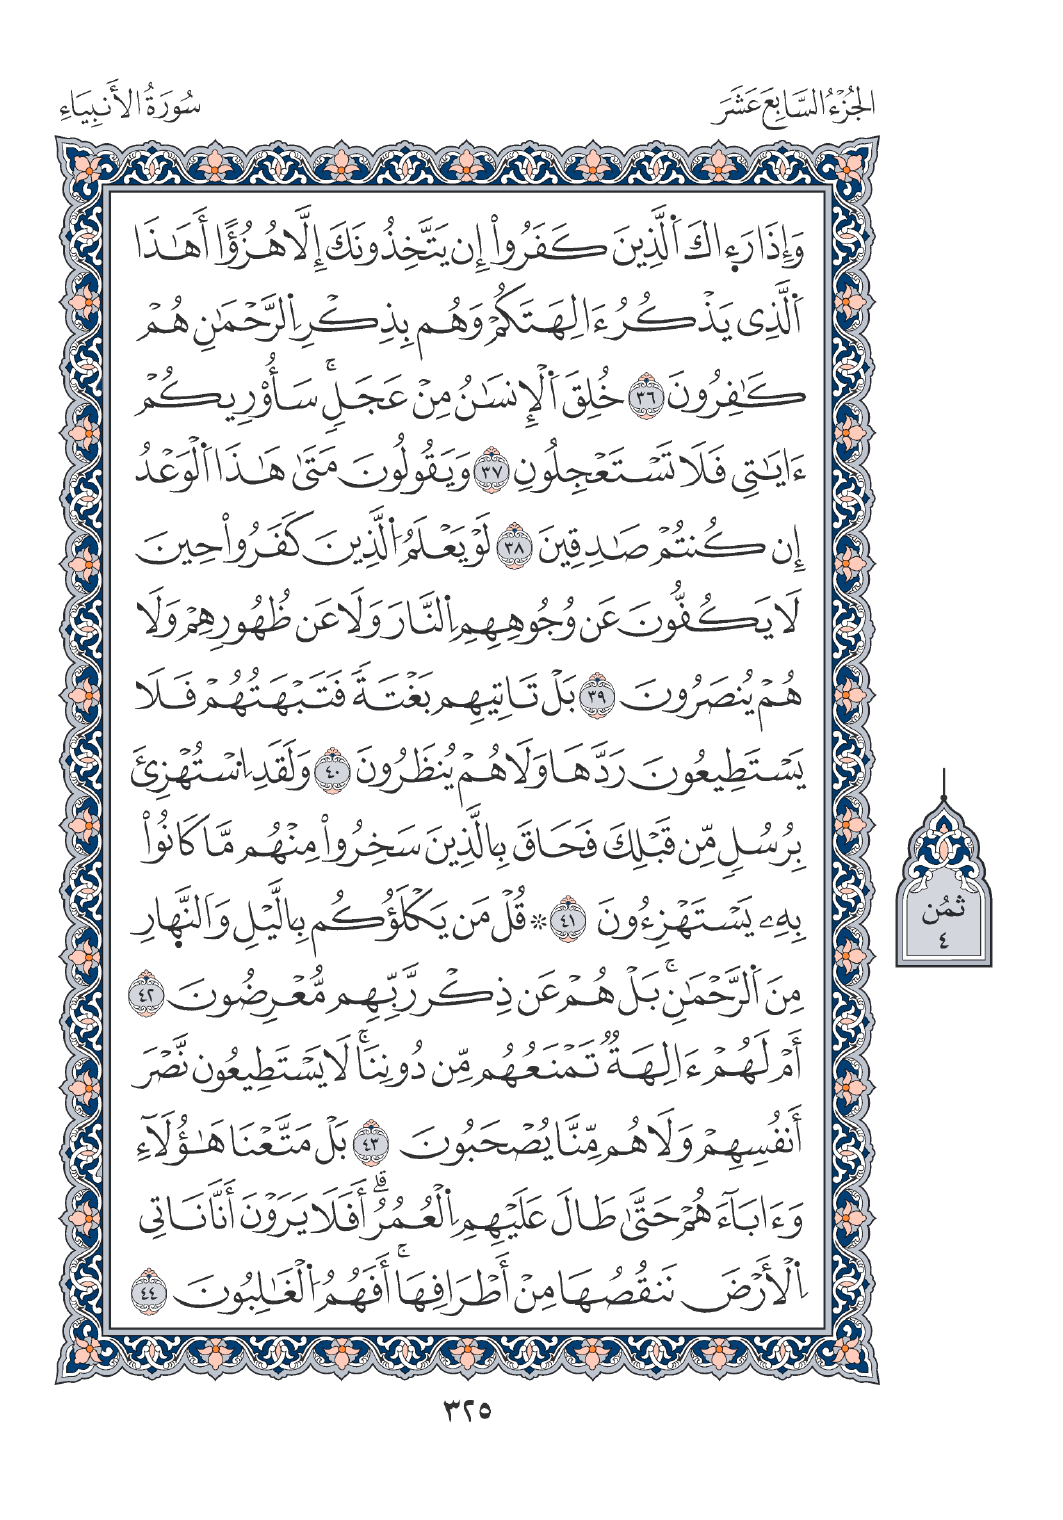 الجُزْءُ السَّابِعَ عَشَرَ
سُورَةُ الأَنبِيَاءِ
وَإِذَا رَءِاكَ اَ۬لَّذِينَ كَفَرُوٓاْ إِن يَتَّخِذُونَكَ إِلَّا هُزُؤًا أَهَٰذَا
اَ۬لَّذِى يَذْكُرُ ءَالِهَتَكُمْ وَهُم بِذِكْرِ اِ۬لرَّحْمَٰنِ هُمْ
كَٰفِرُونَ ٣٦ خُلِقَ اَ۬لْإِنسَٰنُ مِنْ عَجَلٍۚ سَأُوْرِيكُمْ
ءَايَٰتِى فَلَا تَسْتَعْجِلُونِ ٣٧ وَيَقُولُونَ مَتَىٰ هَٰذَا اَ۬لْوَعْدُ
إِن كُنتُمْ صَٰدِقِينَ ٣٨ لَوْ يَعْلَمُ اُ۬لَّذِينَ كَفَرُواْ حِينَ
لَا يَكُفُّونَ عَن وُجُوهِهِمِ اِ۬لنَّارَ وَلَا عَن ظُهُورِهِمْ وَلَا
هُمْ يُنصَرُونَ ٣٩ بَلْ تَاتِيهِم بَغْتَةً فَتَبْهَتُهُمْ فَلَا
يَسْتَطِيعُونَ رَدَّهَا وَلَا هُمْ يُنظَرُونَ ٤٠ وَلَقَدِ اِ۟سْتُهْزِئَ
بِرُسُلٍ مِّن قَبْلِكَ فَحَاقَ بِالَّذِينَ سَخِرُواْ مِنْهُم مَّا كَانُواْ
بِهِۦ يَسْتَهْزِءُونَ ٤١ ۞ قُلْ مَن يَكْلَؤُكُم بِالَّيْلِ وَاَلنَّهِارِ
مِنَ اَ۬لرَّحْمَٰنِۚ بَلْ هُمْ عَن ذِكْر رَّبِّهِم مُّعْرِضُونَ ٤٢
أَمْ لَهُمْ ءَالِهَةٌ تَمْنَعُهُم مِّن دُونِنَاۚ لَا يَسْتَطِيعُون نَّصْرَ
أَنفُسِهِمْ وَلَا هُم مِّنَّا يُصْحَبُونَ ٤٣ بَلْ مَتَّعْنَا هَٰؤُلَآءِ
وَءَابَآءَهُمْ حَتَّىٰ طَالَ عَلَيْهِمِ اِ۬لْعُمُرُۗ أَفَلَا يَرَوْنَ أَنَّا نَاتِى
اِ۬لْأَرْضَ نَنقُصُهَا مِنْ أَطْرَافِهَاۚ أَفَهُمُ اُ۬لْغَٰلِبُونَ ٤٤
ثُمُن
٤
٣٢٥